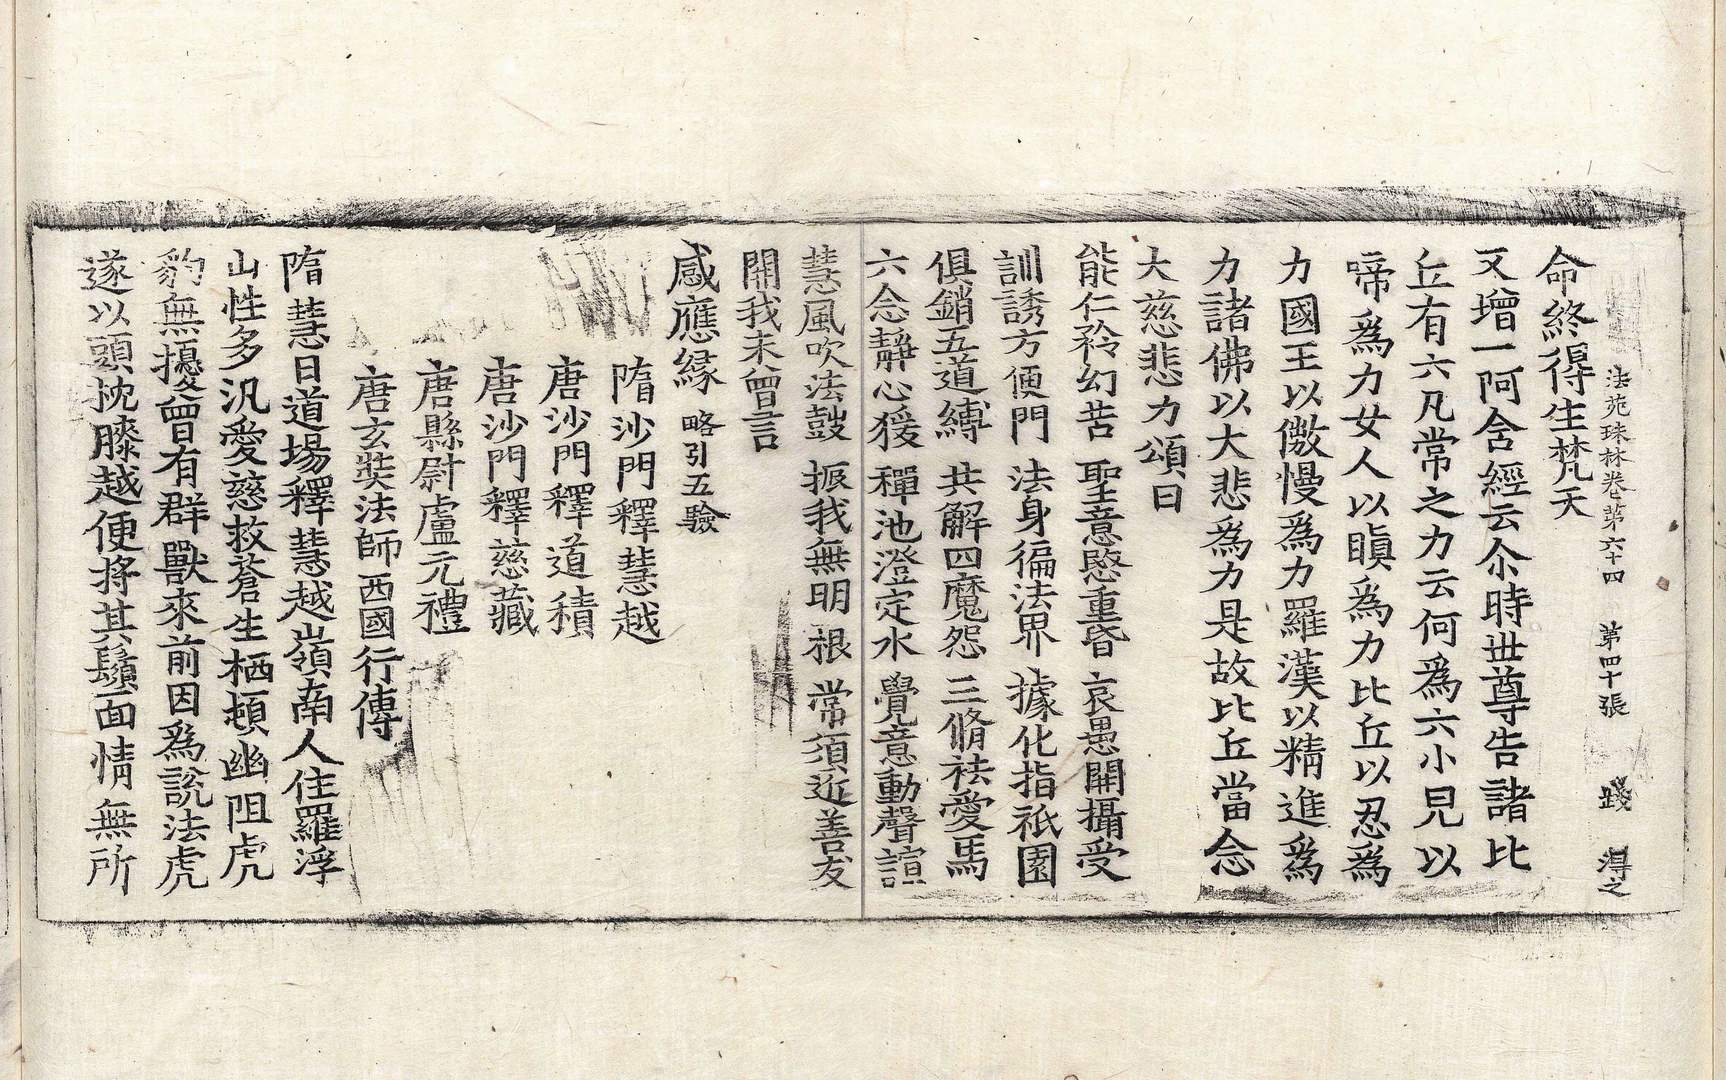 法苑珠林卷第六十四　第四十張　踐　淂之
命終得生梵天
又增一阿含經云尒時世尊告諸比
丘有六凡常之力云何爲六小兒以
啼爲力女人以瞋爲力比丘以忍爲
力國王以憿慢爲力羅漢以精進爲
力諸佛以大悲爲力是故比丘當念
大慈悲力頌曰
能仁矜幻苦　聖意愍重昏　哀愚開攝受
訓誘方便門　法身徧法界　據化指祇園
俱銷五道縛　共解四魔怨　三脩祛愛馬
六念靜心猨　禪池澄定水　覺意動聲諠
慧風吹法鼓　振我無明根　常須近善友
開我未曾言
感應緣 略引五驗
隋沙門釋慧越
唐沙門釋道積
唐沙門釋慈藏
唐縣尉盧元禮
唐玄奘法師西國行傳
隋慧日道場釋慧越嶺南人住羅浮
山性多汎愛慈救蒼生栖頓幽阻虎
豹無擾曾有群獸來前因爲說法虎
遂以頭枕膝越便捋其鬚面情無所